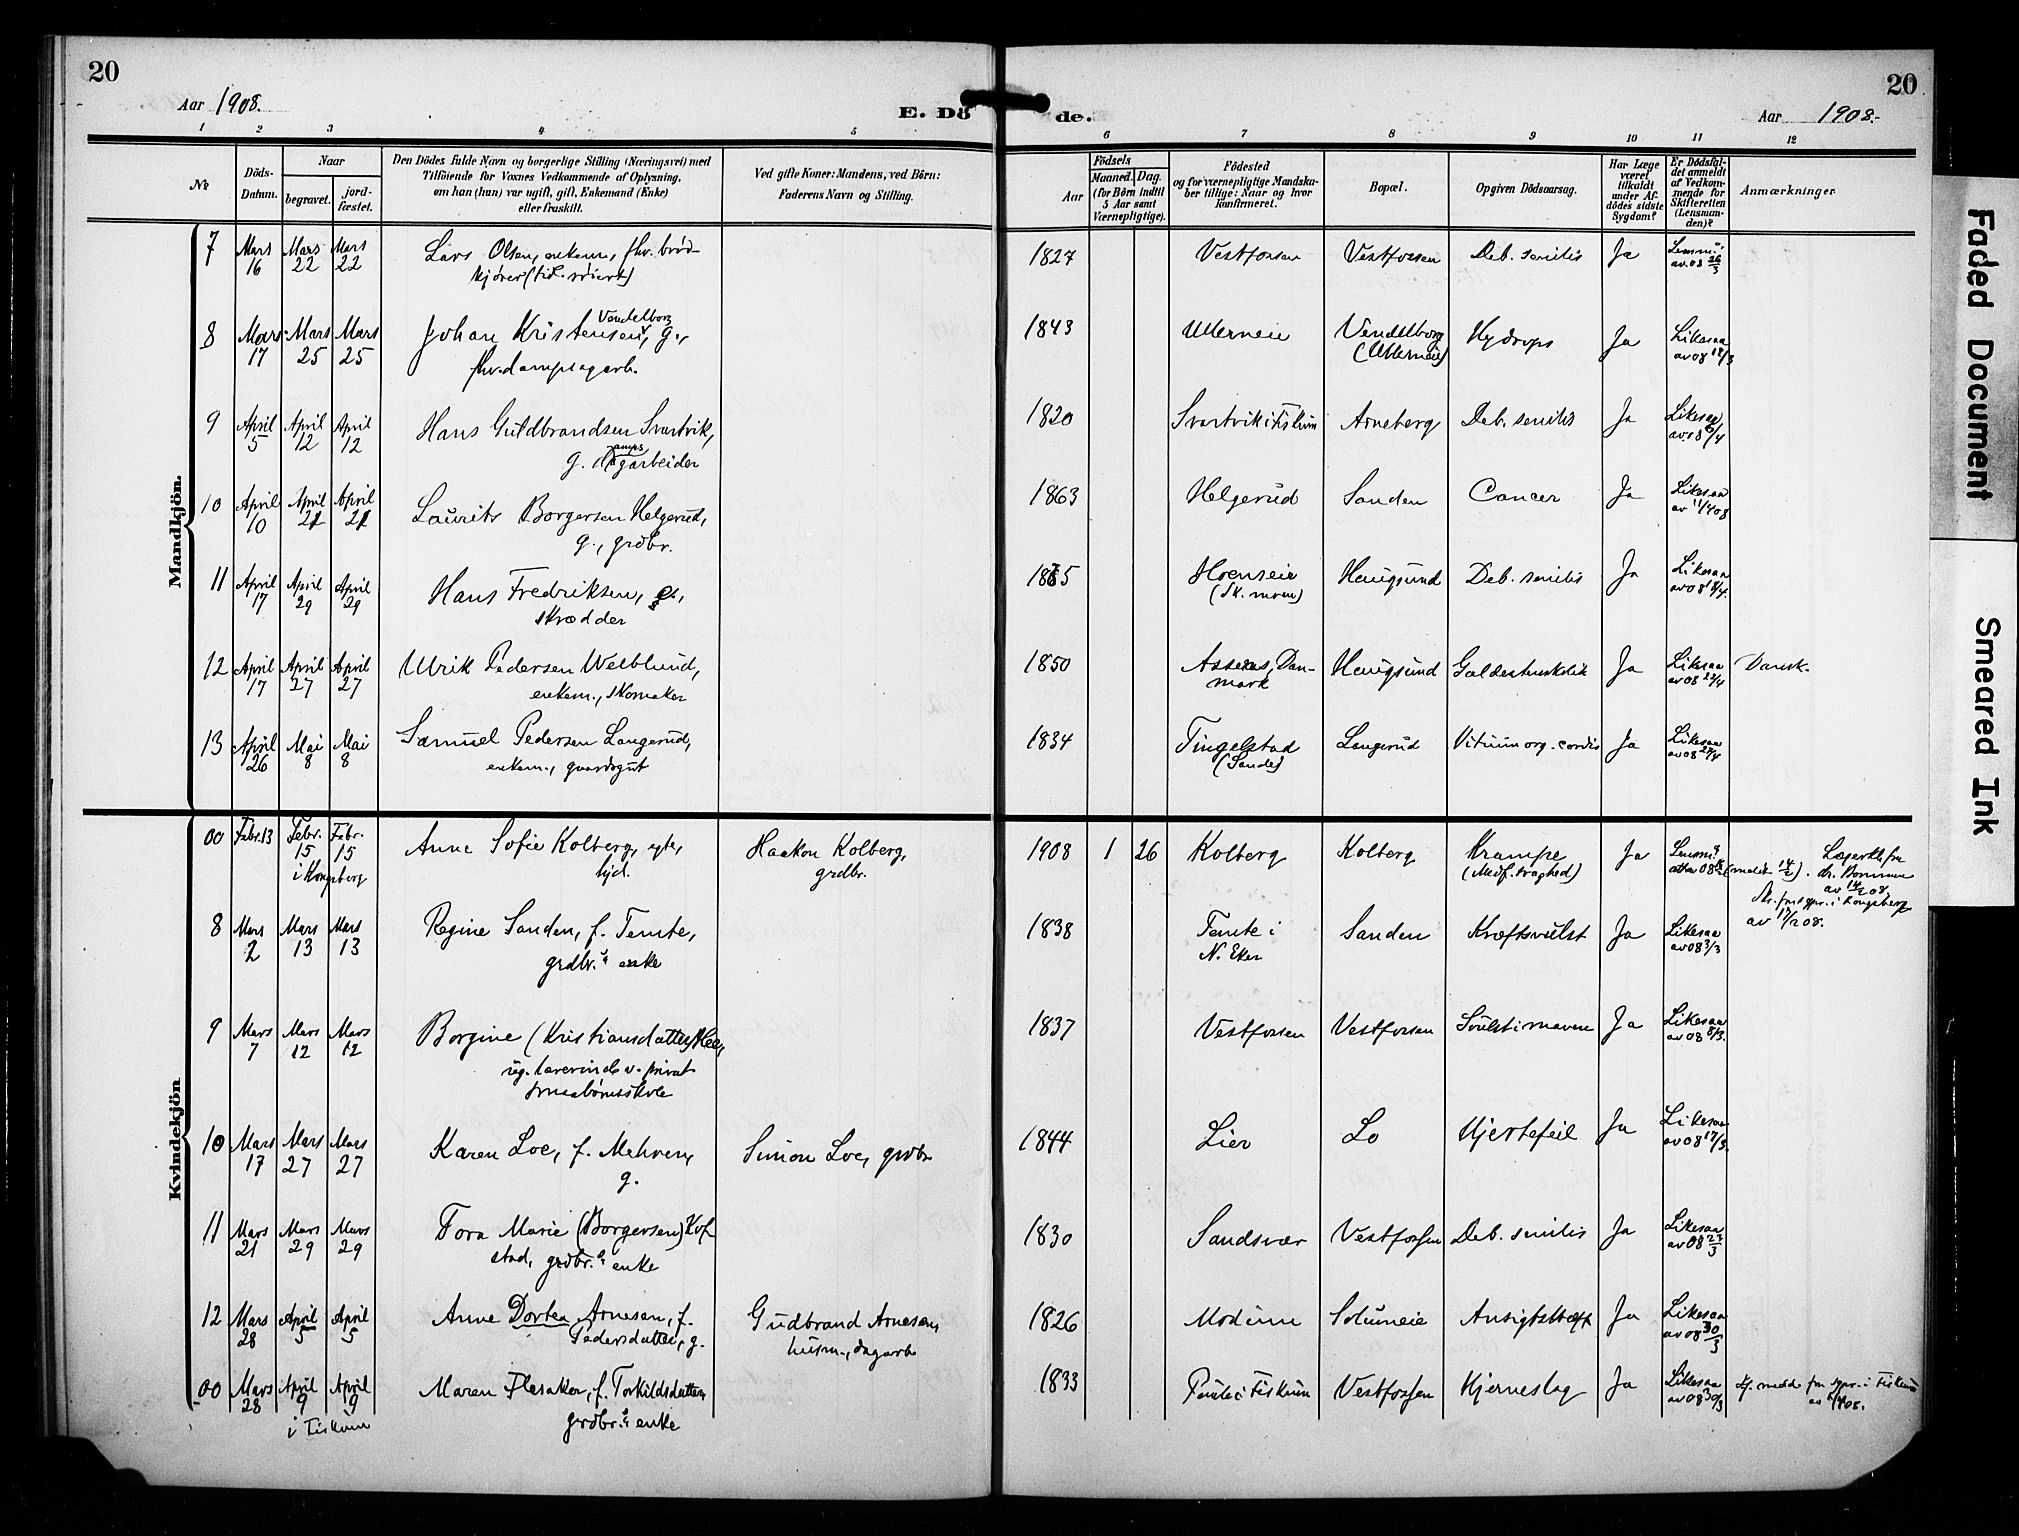 20
Aar 1908.
E. Dö
de.
Aar 1908.-
20
1 2 3 4 5 6 7 8 9 10 11 12
№
Döds-
Datum.
Naar
begravet.
jord-
fæstet.
Den Dödes fulde Navn og borgerlige Stilling (Næringsvei) med
Tilföiende for Voxnes Vedkommende af Oplysning,
om han (hun) var ugift, gift, Enkemand (Enke)
eller fraskilt.
Ved gifte Koner: Mandens, ved Börn:
Faderens Navn og Stilling.
Födsels
Aar
Maaned. Dag.
(for Börn indtil
5 Aar samt
Værnepligtige).
Födested
og for værnepligtige Mandska-
ber tillige: Naar og hvor
konfirmeret.
Bopæl.
Opgiven Dödsaarsag.
Har Læge
været
tilkaldt
under Af-
dödes sidste
Sygdom?
Er Dödsfal-
det anmeldt
af Vedkom-
mende for
Skifteretten
(Lensman-
den)?
Anmærkninger
Mandkjön.
7 Mars 16 Mars 22 Mars 22 Lars Olsen, enkem., fhv. brød-
kjører
1827 Vestfossen Vestfossen Deb. senilis Ja Lensm.
av 08 26/3
8 Mars 17 Mars 25 Mars 25 Johan Kristensen Vendelborg, g.,
fhv. dampsagarb.
1843 Ullerneie Vendelborg (Ullerneie) Hydrops Ja Likesaa
av 08 18/3
9 April 5 April 12 April 12 Hans Guldbrandsen Svartvik,
g. dampsagarbeider
1820 Svartvik i Fiskum Arneberg Deb. senilis Ja Likesaa
av 08 6/4
10 April 10 April 21 April 21 Laurits Borgersen Helgerud,
g., grdbr.
1863 Helgerud Sanden Cancer Ja Likesaa
av 11/4 08
11 April 17 April 29 April 29 Hans Fredriksen,
skrædder
Hoenseie Haugsund Deb. senilis Ja Likesaa
av 08 18/4.
12 April 17 April 27 April 27 Ulrik Pedersen Welblund,
enkem., skomaker
1850 Assens, Dan-
mark Haugsund Galdestenskolik Ja Likesaa
av 08 22/4 Dansk.
13 April 26 Mai 8 Mai 8 Samuel Pedersen Langerud,
enkem., gaardsgut
1834 Tingelstad
(Sande) Langerud Vitium org. cordis Ja Likesaa
av 08 27/4
Kvindekjön
00 Febr. 13 Febr. 15 Febr. 15
i Kongsberg
Anne Sofie Kolberg, egte,
hjd.
Haakon Kolberg,
grdbr.
1908 1 26 Kolberg Kolberg Krampe
(Medf. svaghed) Ja Lensm.
Lægeatt. fra
dr. Bommen
av 14/2 08.
av 17/2 08.
8 Mars 2 Mars 13 Mars 13 Regine Sanden, f. Temte,
grdbr.s enke
1838 Temte i
N. Eker Sanden Kræftsvulst Ja Likesaa
av 08 3/3
9 Mars 7 Mars 12 Mars 12 Borgine (Kristiansdatter) Moe,
ug. lærerinde v. privat
smaabørnsskole
1837 Vestfossen Vestfossen Svulst i maven Ja Likesaa
av 08 8/3.
10 Mars 17 Mars 27 Mars 27 Karen Loe, f. Mehren,
g.
Simon Loe, grdbr.
1844 Lier Lo Hjertefeil Ja Likesaa
av 08 17/3.
11 Mars 21 Mars 29 Mars 29 Tora Marie (Borgersen) Kof
stad, grdbr.s enke
1830 Sandsvær Vestfossen Deb. senilis Ja Likesaa
av 08 23/3
12 Mars 28 April 5 April 5 Anne Dortea Arnesen, f.
Pedersdatter, g.
Gudbrand Arnesen,
husm., dagarb
1826 Modum Solumeie Ansigtskræft Ja Likesaa
av 08 30/3
00 Mars 28 April 9 April 9
i Fiskum
Maren Flesaker, f. Torkildsdatter,
grdbr.s enke
1833 i Fiskum Vestfossen Hjerneslag Ja Likesaa
av 08 30/3 medd fra spr. i Fiskum
Faded Document
Smeared Ink